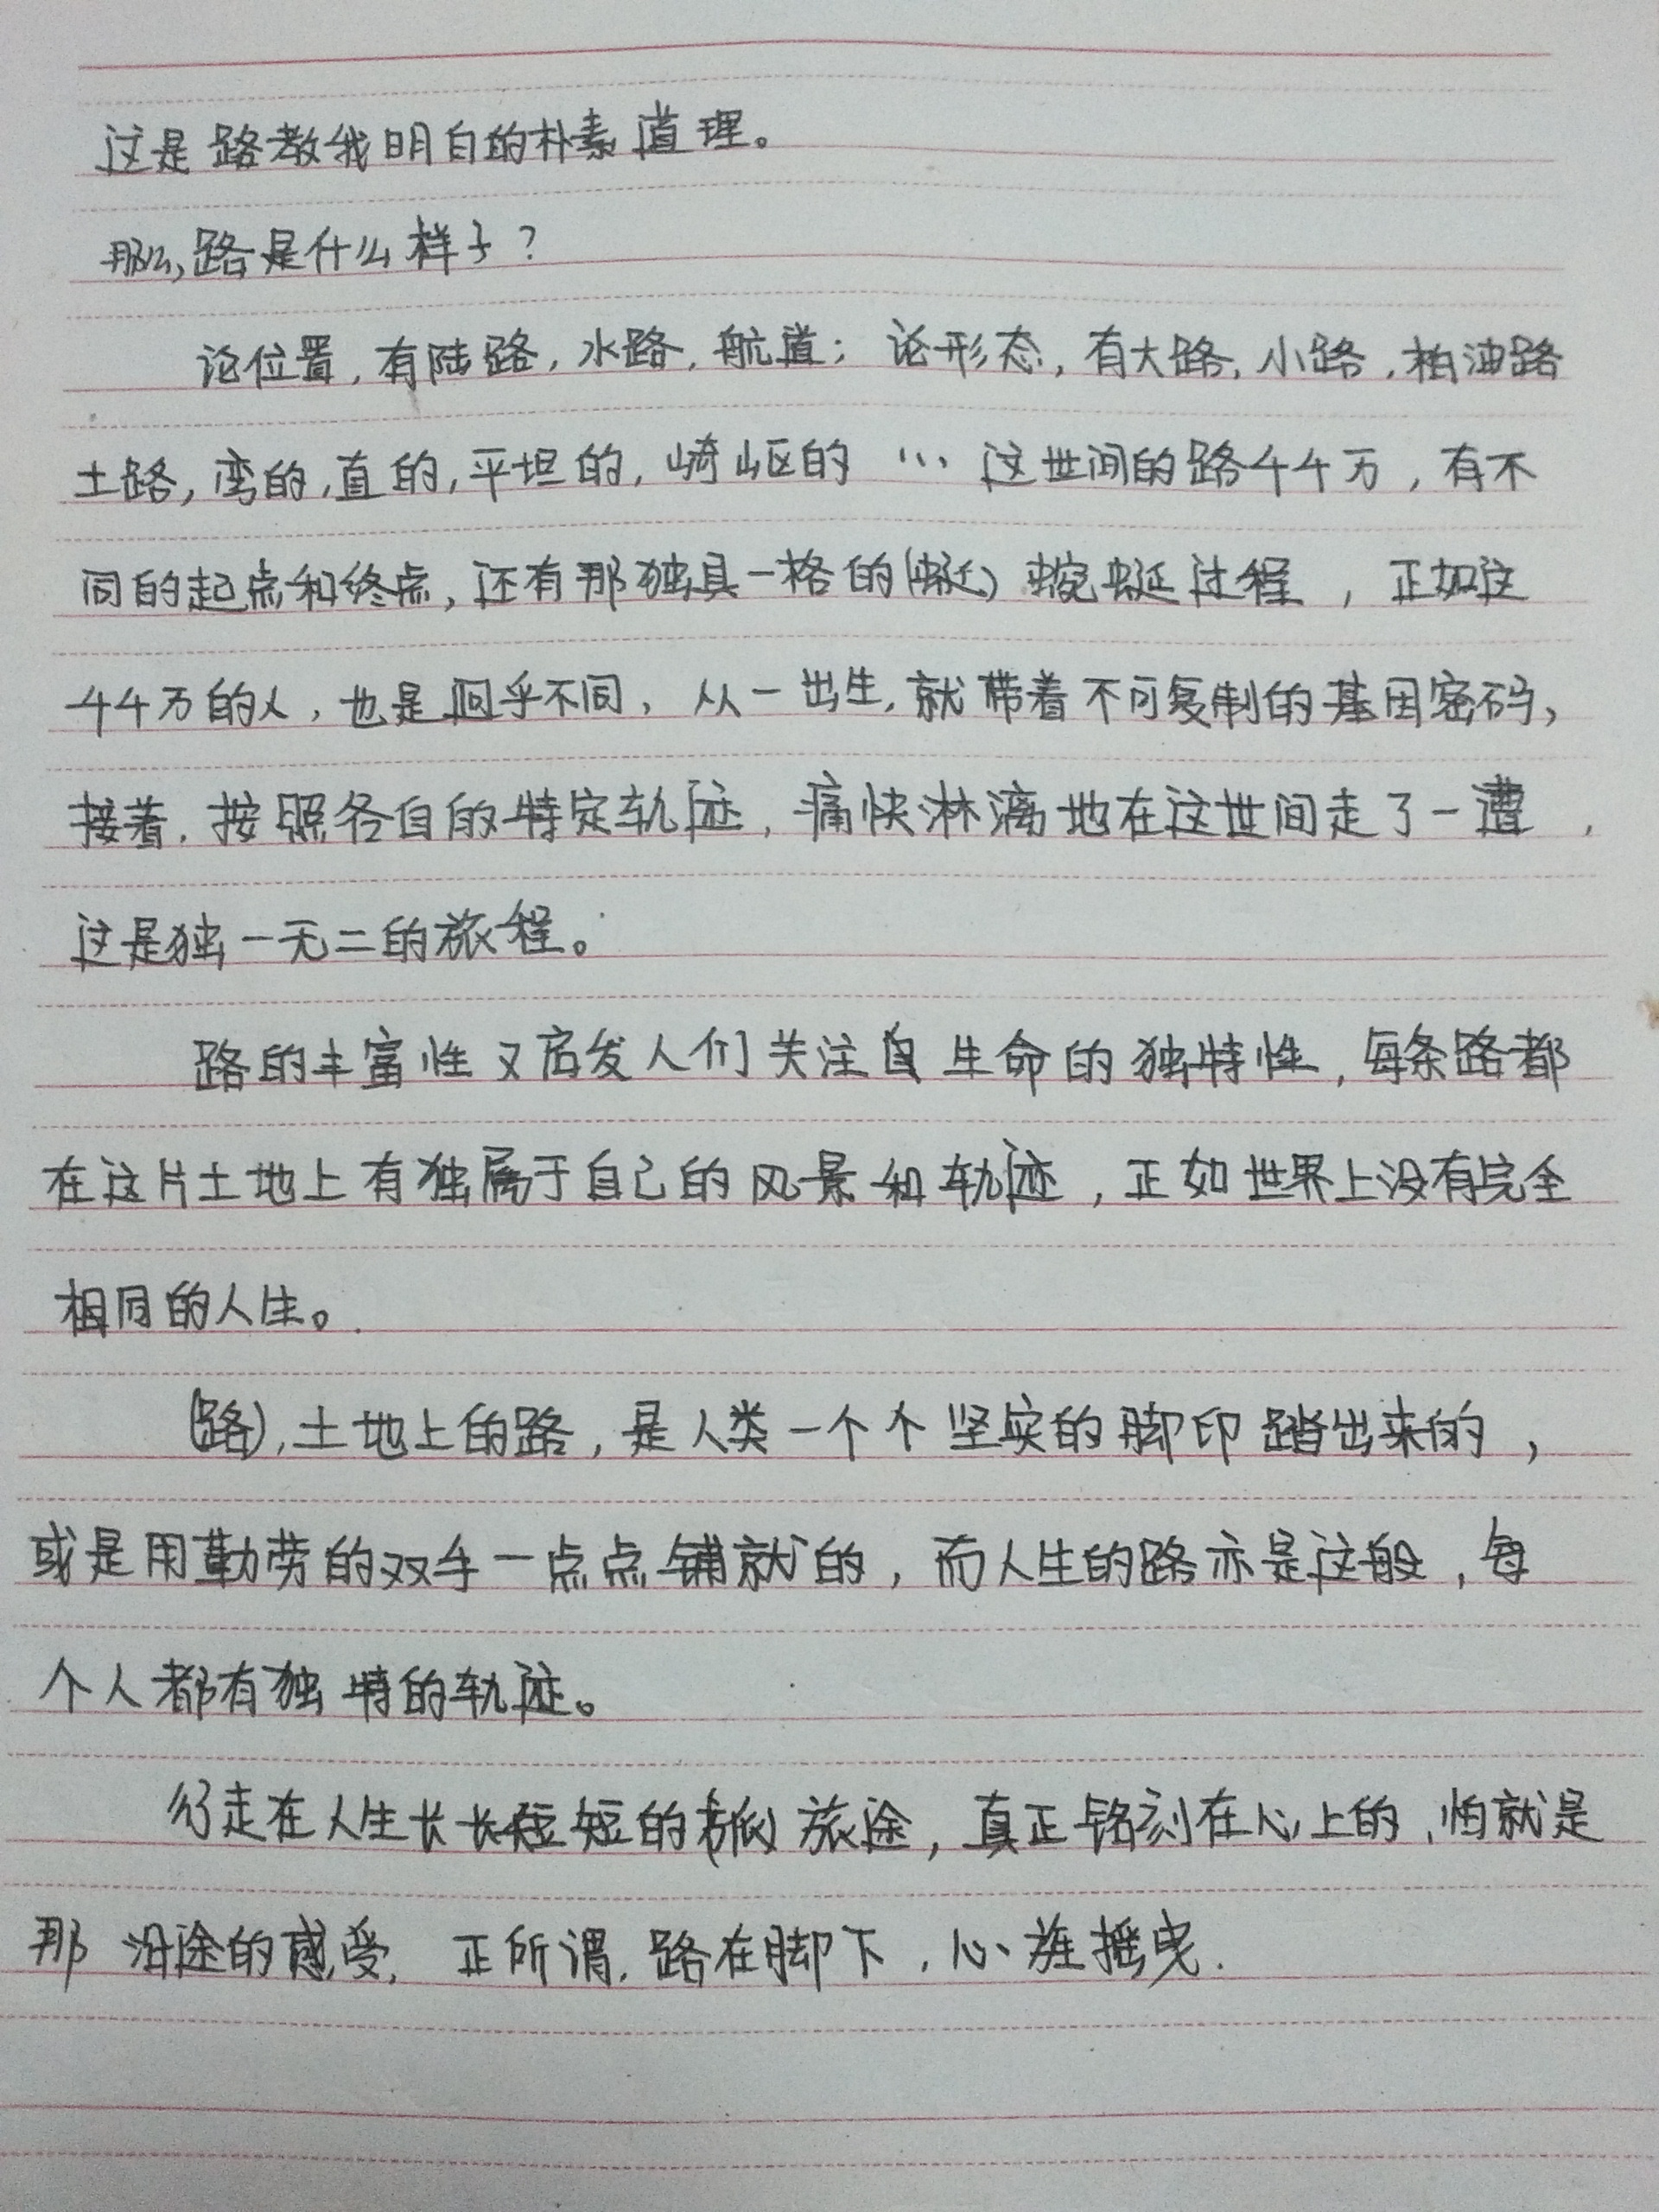 这是路教我明白的朴素道理。
那么,路是什么样子?
论位置,有陆路,水路,航道;论形态,有大路,小路,柏油路
土路,弯的,直的,平坦的,崎岖的…这世间的路千千万,有不
同的起点和终点,还有那独具一格的(蜒)蜿蜒过程,正如这
千千万的人,也是迥乎不同,从一出生,就带着不可复制的基因密码,
接着,按照各自的特定轨迹,痛快淋漓地在这世间走了一遭,
这是独一无二的旅程。
路的丰富性又启发人们关注自生命的独特性,每条路都
在这片土地上有独属于自己的风景和轨迹,正如世界上没有完全
相同的人生。
(路),土地上的路,是人类一个个坚实的脚印踏出来的,
或是用勤劳的双手一点点铺就的,而人生的路亦是这般,每
个人都有独特的轨迹。
行走在人生长长短短的旅途,真正铭刻在心上的,怕就是
那沿途的感受,正所谓,路在脚下,心旌摇曳.